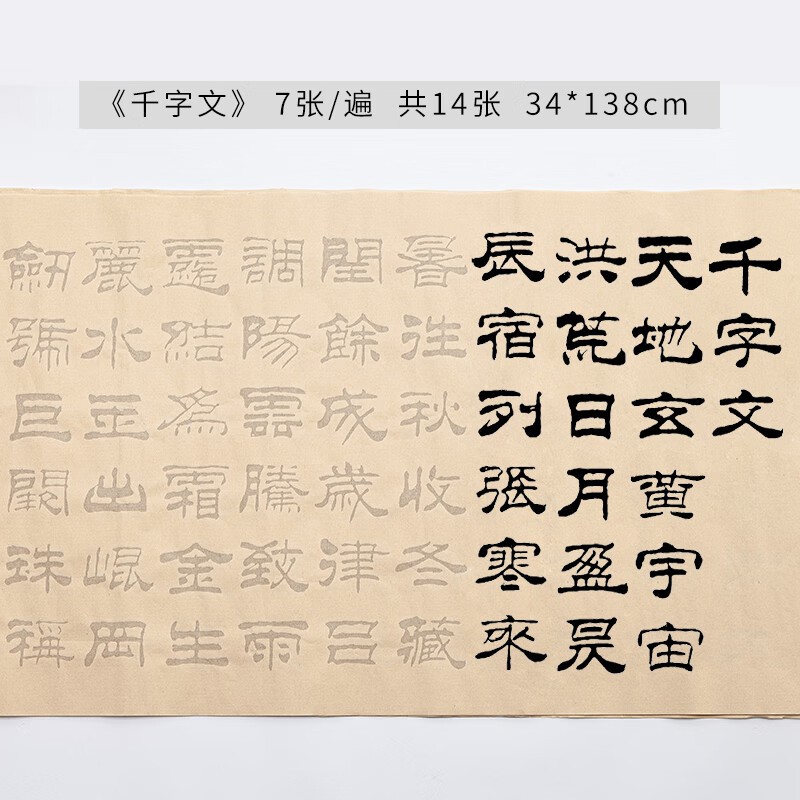 《千字文》 7张/遍 共14张 34*138cm
千字文
天地玄黃宇宙
洪荒日月盈昃
辰宿列張寒來
暑往秋收冬藏
閏餘成歲律呂
調陽雲騰致雨
露結為霜金生
麗水玉出崐岡
劒號巨闕珠稱